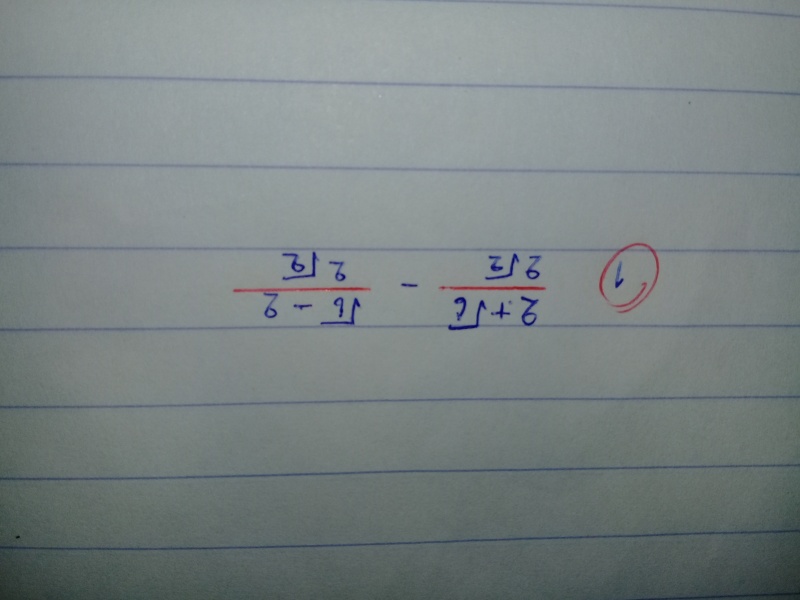 ① 2+√6 / 2√2 - √6 - 2 / 2√2